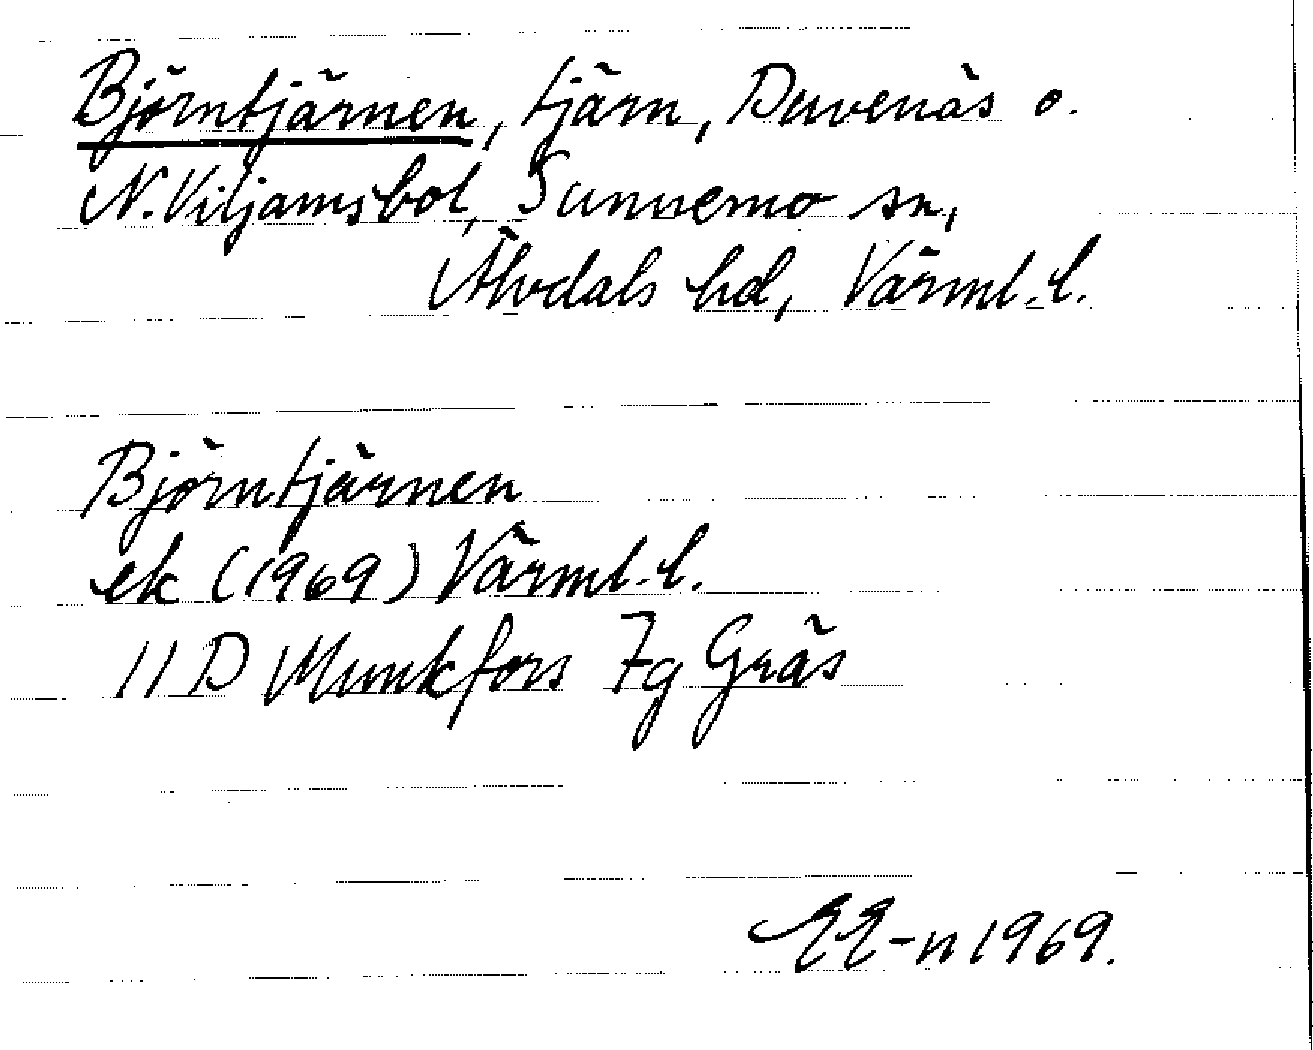 Björntjärnen, tjärn, Duvenäs o.
N. Viljamsbol, Sunnemo sn,
Älvdals hd, Värml. l.
Björntjärnen
ek (1969) Värml. l.
11 D Munkfors 7g Gräs
EE-n 1969.